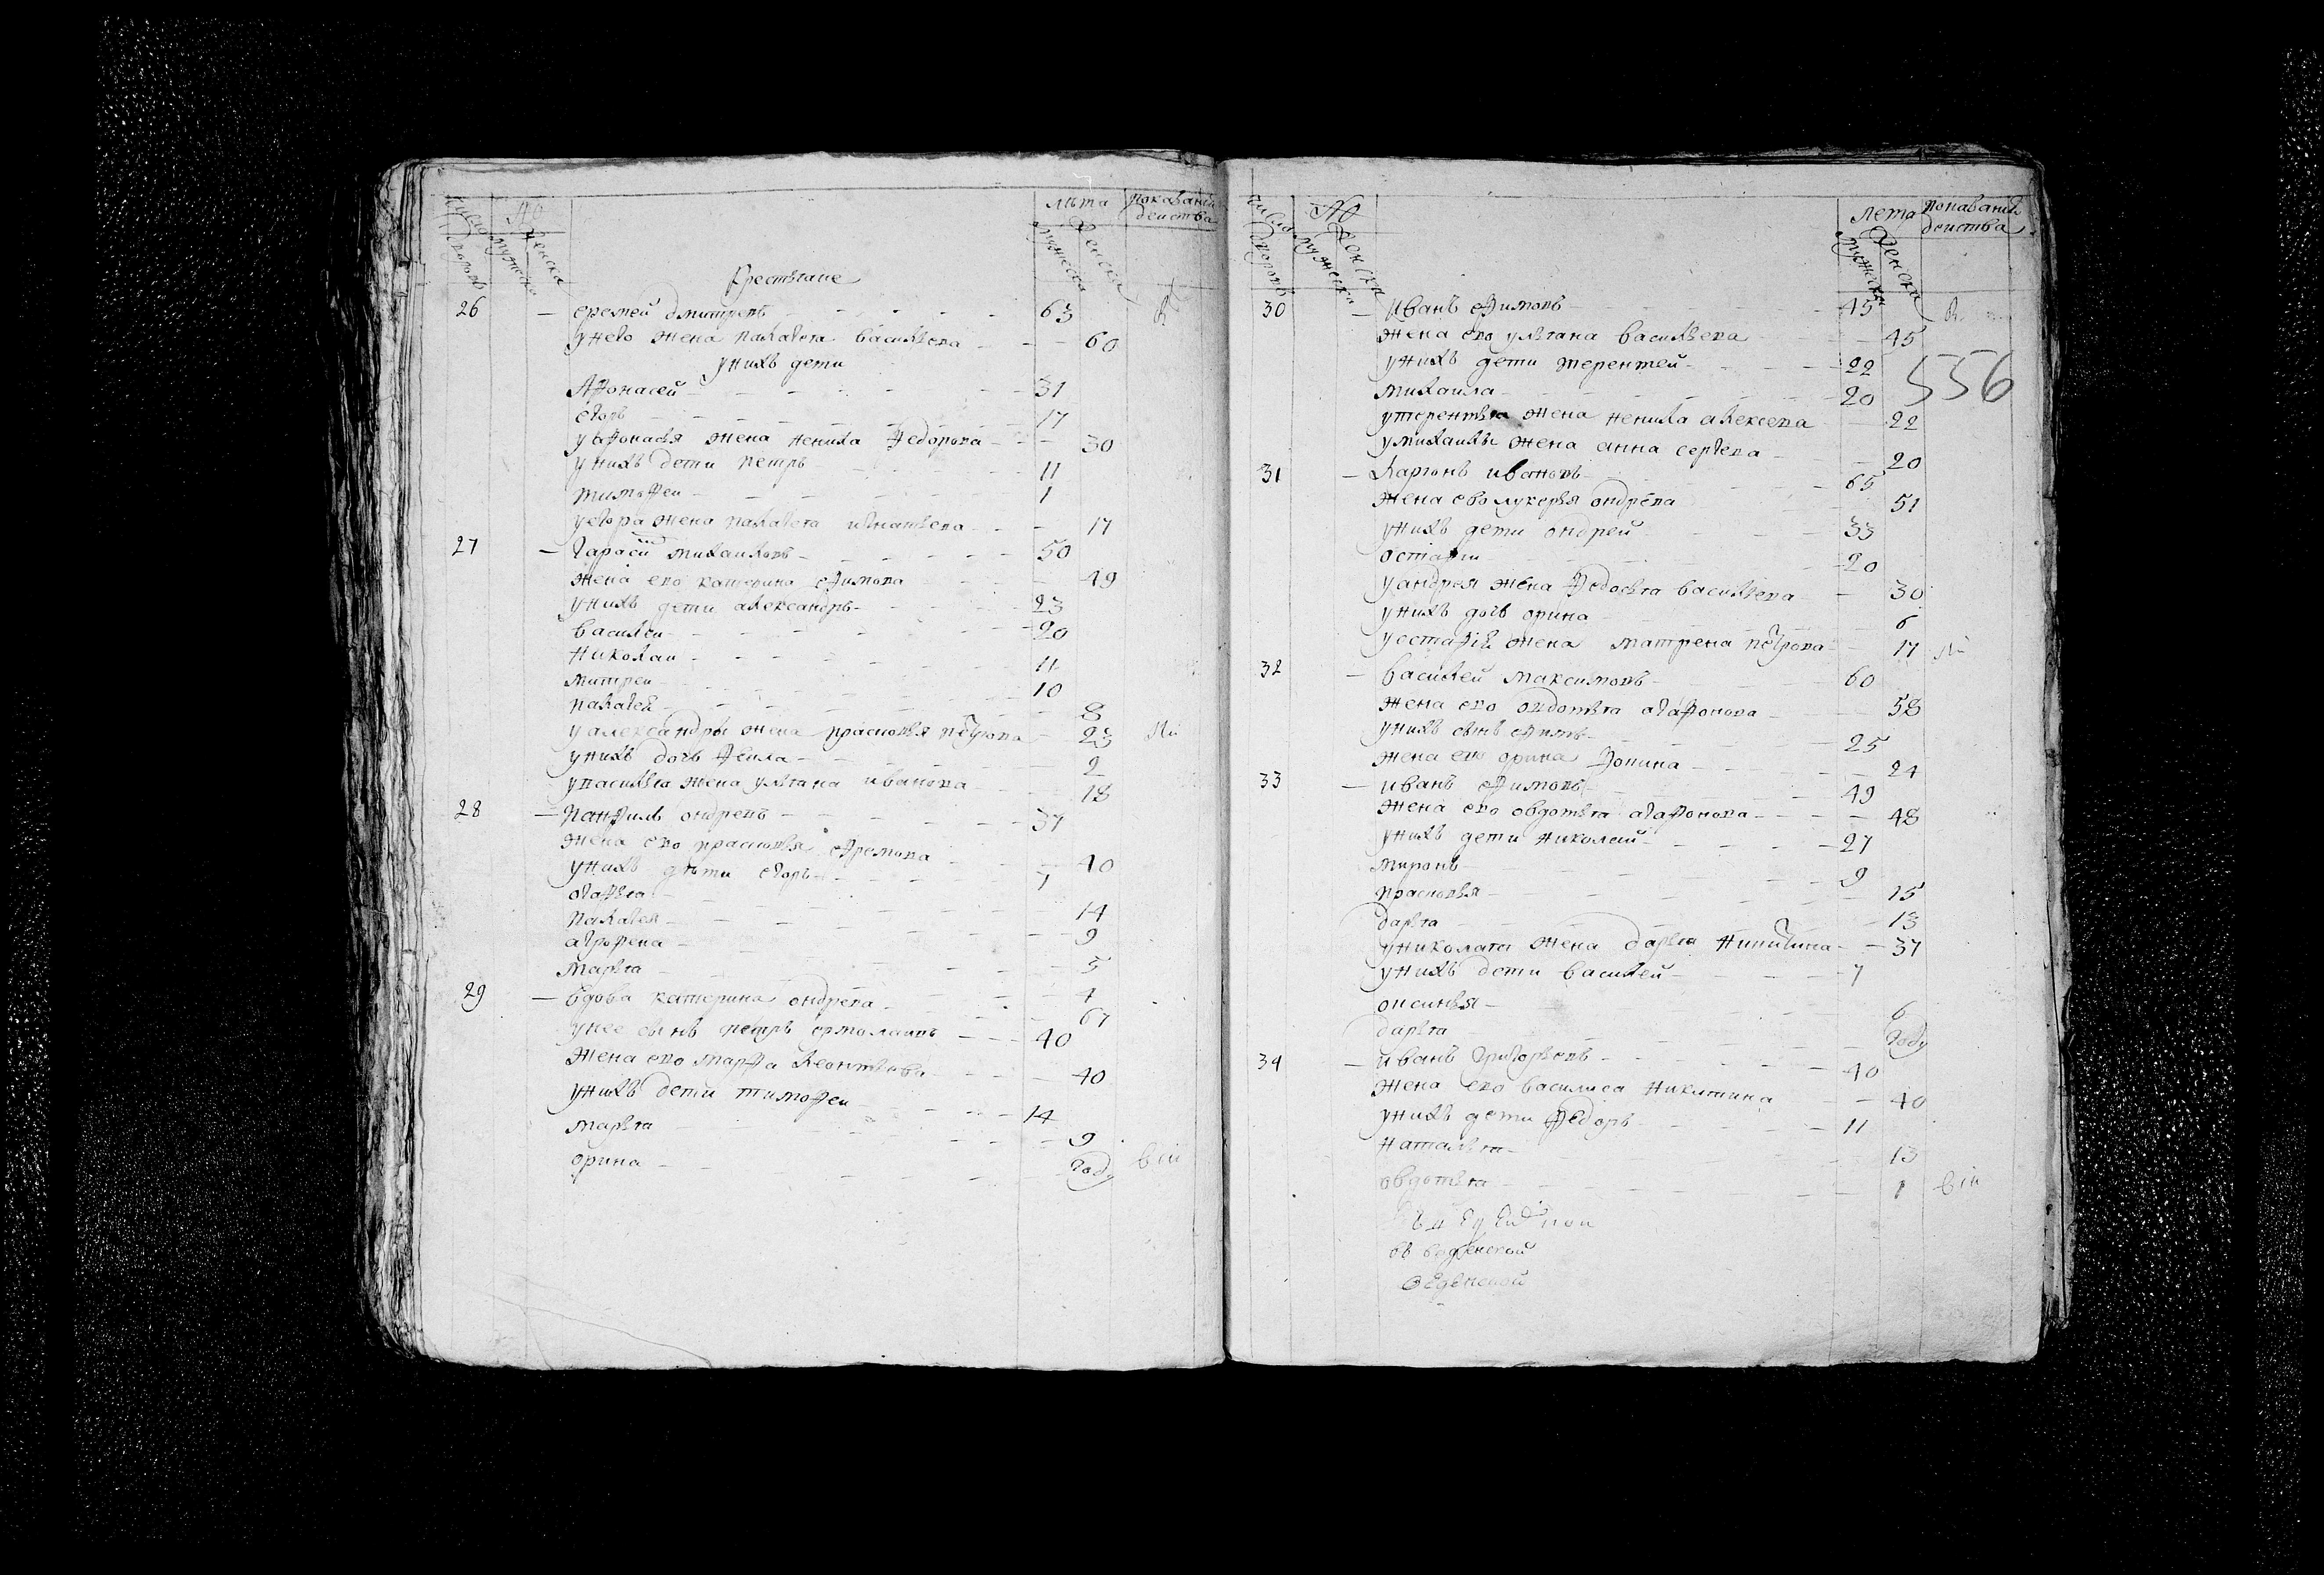 число дворовъ
мужеска
женска
лѣта
мужеска
женска
показаніи
действа
Крестьяне
26 — еремей дмитревъ 63
у него жена палагея васильева 60
у нихъ дети
Афонасей 31
егоръ 17
у афонасья жена ненила федорова 30
у нихъ дети петръ 11
тимофеи 1
у егора жена палагея игнатьева 17
27 — Гарасим михаиловъ 50
жена ево катерина ефимова 49
у нихъ дети александръ 23
василеи 20
николаи 11
митреи 10
палагея 8
у александры жена прасковья петрова 23
у нихъ дочь фекла 2
у василья жена ульяна иванова 18
28 — Панфилъ ондревъ 37
жена ево прасковья ефремова 40
у нихъ дѣти егоръ 7
агафья 14
палагея 9
аграфена 5
марья 4
29 — вдова катерина ондрева 67
у нее сынъ петръ ермолаивъ 40
жена ево марфа леонтьева 40
у нихъ дети тимофеи 14
марья 9
орина году
число дворовъ
мужеска
женска
лета
мужеска
женска
показаніи
действа
556
30 — Иванъ ефимовъ 45
жена ево ульяна васильева 45
у нихъ дети терентей 22
михаила 20
у терентья жена ненила алексева 22
у михаилы жена анна сергева 20
31 — Ларионъ ивановъ 65
жена ево лукерья ондрева 51
у нихъ дети ондрей 33
остафи 20
у андрея жена федосья васильева 30
у нихъ дочь орина 6
у естафія жена матрена петрова 17
32 — василей максимовъ 60
жена ево овдотья агафонова 58
у нихъ сынъ ефимъ 25
жена ево орина фомина 24
33 — иванъ ефимовъ 49
жена ево овдотья агафонова 48
у нихъ дети николаи 27
миронъ 9
прасковья 15
дарья 13
у николая жена дарья никитина 37
у нихъ дети василей 7
оксинья 6
дарья году
34 — иванъ григорьевъ 40
жена ево василиса никитина 40
у нихъ дети федоръ 11
наталья 13
овдотья 1